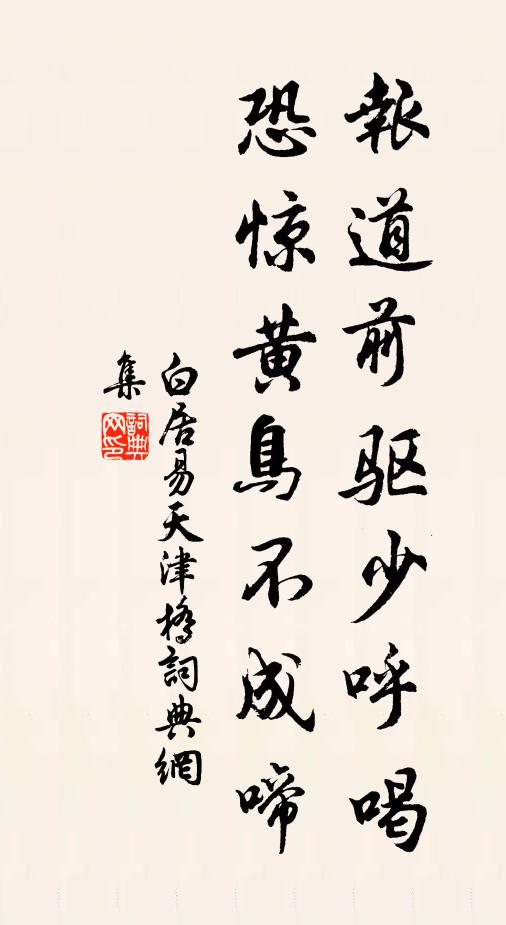 報道前驱少呼喝
恐惊黄鳥不成啼
白居易天津橋詞典網
集
詞典
网印